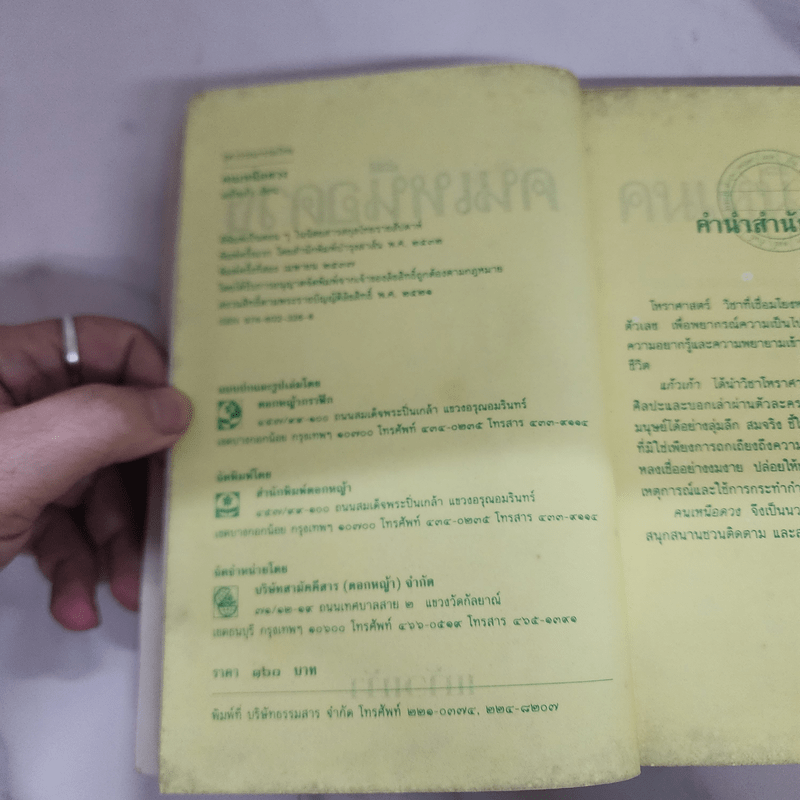 คนเหนือดวง
แก้วเก้า เขียน
พิมพ์ครั้งแรก โดยสำนักพิมพ์บำรุงสาส์น พ.ศ. ๒๕๓๒
พิมพ์ครั้งที่สอง เมษายน ๒๕๓๗
โดยได้รับการอนุญาตจัดพิมพ์จากเจ้าของลิขสิทธิ์ถูกต้องตามกฎหมาย
สงวนลิขสิทธิ์ตามพระราชบัญญัติลิขสิทธิ์ พ.ศ. ๒๕๒๑
ออกแบบและรูปเล่มโดย
ดอกหญ้ากราฟิก
๑๕๗/๙๙-๑๐๐ ถนนสมเด็จพระปิ่นเกล้า แขวงอรุณอมรินทร์
เขตบางกอกน้อย กรุงเทพฯ ๑๐๗๐๐ โทรศัพท์ ๔๓๔-๐๒๓๕ โทรสาร ๔๓๓-๙๑๑๔
จัดพิมพ์โดย
สำนักพิมพ์ดอกหญ้า
๑๕๗/๙๙-๑๐๐ ถนนสมเด็จพระปิ่นเกล้า แขวงอรุณอมรินทร์
เขตบางกอกน้อย กรุงเทพฯ ๑๐๗๐๐ โทรศัพท์ ๔๓๔-๐๒๓๕ โทรสาร ๔๓๓-๙๑๑๔
จัดจำหน่ายโดย
บริษัทสามัคคีสาร (ดอกหญ้า) จำกัด
๗๑/๑๒-๑๙ ถนนเทศบาลสาย ๒ แขวงวัดกัลยาณ์
เขตธนบุรี กรุงเทพฯ ๑๐๖๐๐ โทรศัพท์ ๔๖๖-๐๕๑๙ โทรสาร ๔๖๕-๑๓๙๑
ราคา ๑๒๐ บาท
พิมพ์ที่ บริษัทธรรมสาร จำกัด โทรศัพท์ ๒๒๑-๐๓๗๔, ๒๒๔-๘๒๐๗
คำนำสำนั
โหราศาสตร์ วิชาที่เชื่อมโยง
ตัวเลข เพื่อพยากรณ์ความเป็นไป
ความอยากรู้และความพยายามเข้า
ชีวิต
แก้วเก้า ได้นำวิชาโหรา
ศิลปะและบอกเล่าผ่านตัวละคร
มนุษย์ได้อย่างลุ่มลึก สมจริง
ที่มิใช่เพียงการถกเถียงถึงความ
หลงเชื่ออย่างงมงาย ปล่อยให้
เหตุการณ์และใช้การกระทำ
คนเหนือดวง จึงเป็น
สนุกสนานชวนติดตาม และ